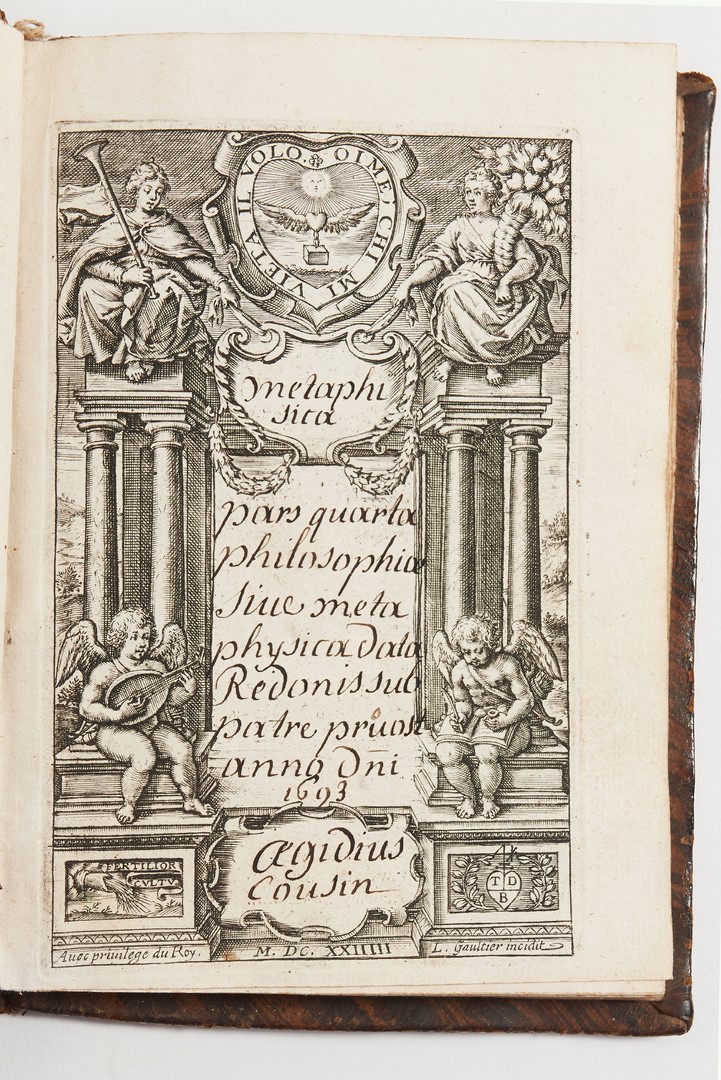 IL VOLO. OIME, CHI MI VIETA
metaphi
sica
pars quarta
philosophiæ
siue meta
physica data
Redonis sub
patre pruost
anno Dn̄i
1693
FERTILIOR
CVLTV
Ægidius
Cousin
T D
B
Auec priuilege du Roy.
M. DC. XXIIIII
L. Gaultier incidit